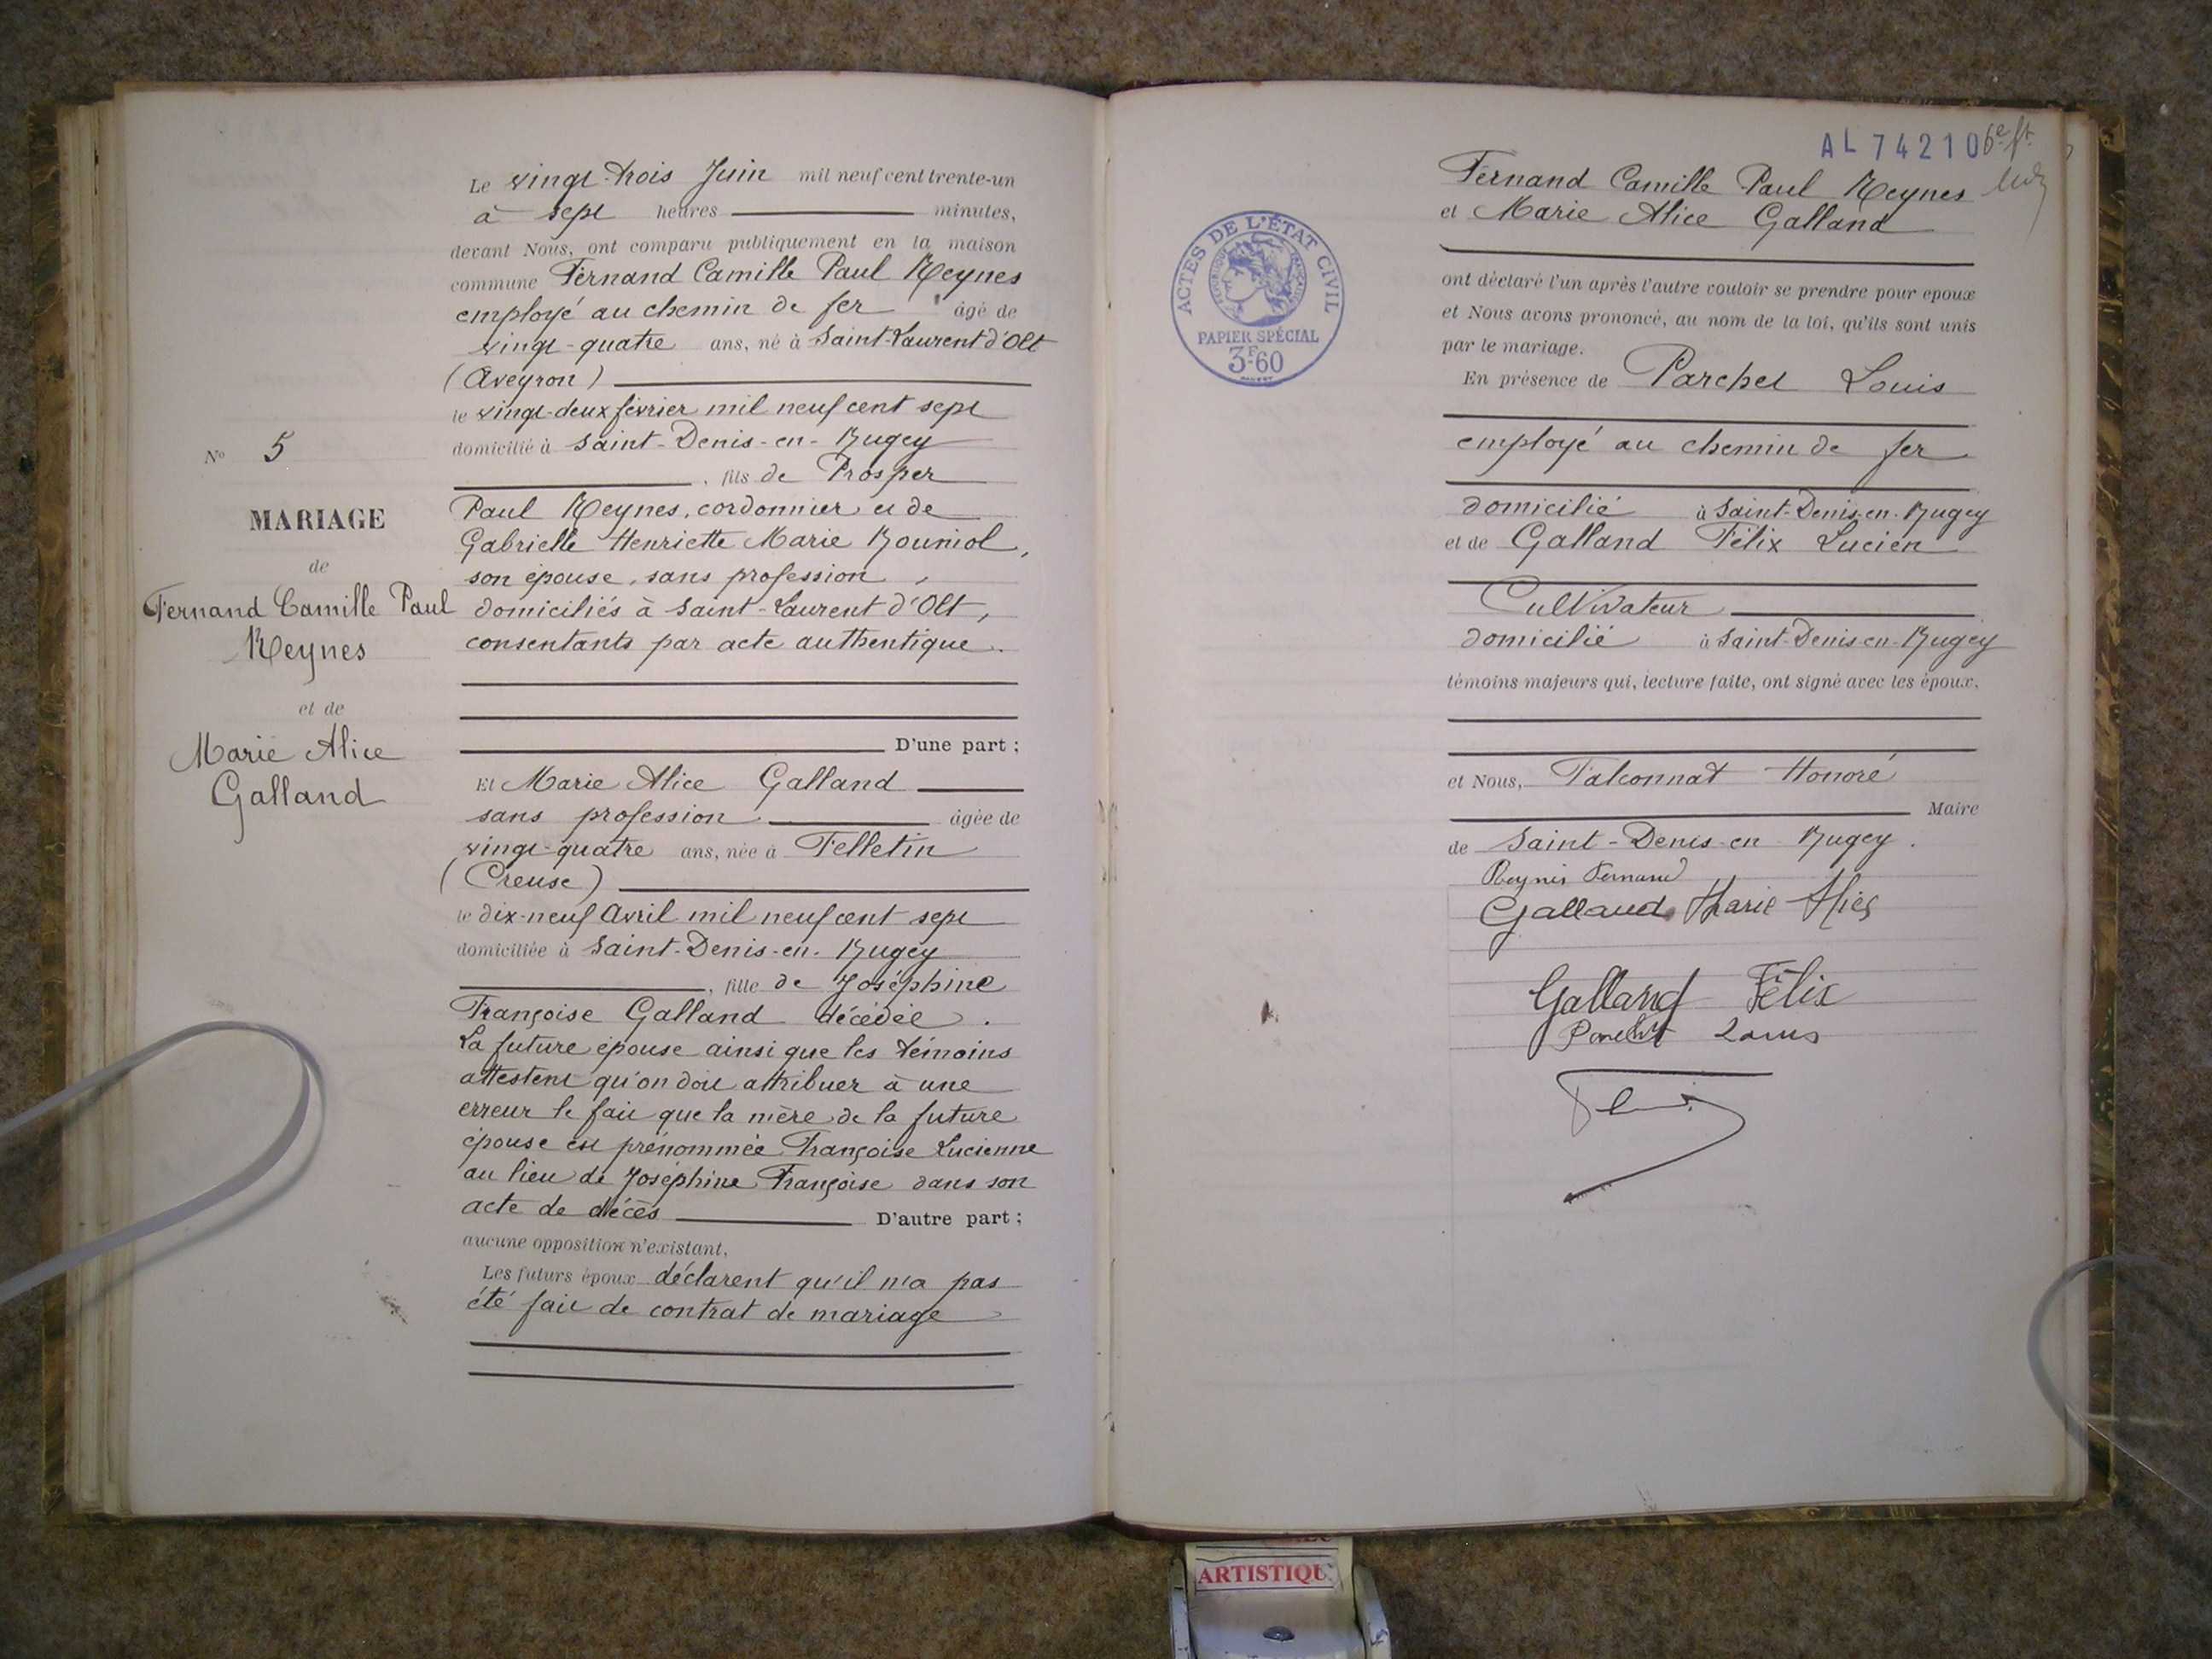 Le vingt-trois Juin mil neuf cent trente-un
à sept heures minutes,
devant Nous, ont comparu publiquement en la maison
commune Fernand Camille Paul Reynes
employé au chemin de fer âgé de
vingt-quatre ans, né à Saint-Laurent d'Olt
(Aveyron)
le vingt-deux février mil neuf cent sept
domicilié à Saint-Denis-en-Bugey
, fils de Prosper
Paul Reynes, cordonnier et de
Gabrielle Henriette Marie Bouniol,
son épouse, sans profession,
domiciliés à Saint-Laurent d'Olt,
consentants par acte authentique.
D'une part ;
Et Marie Alice Galland
sans profession âgée de
vingt-quatre ans, née à Felletin
(Creuse)
le dix-neuf Avril mil neuf cent sept
domiciliée à Saint-Denis-en-Bugey
, fille de Joséphine
Françoise Galland décédée.
La future épouse ainsi que les témoins
attestent qu'on doit attribuer à une
erreur le fait que la mère de la future
épouse est prénommée Françoise Lucienne
au lieu de Joséphine Françoise dans son
acte de décès D'autre part ;
aucune opposition n'existant,
Les futurs époux déclarent qu'il n'a pas
été fait de contrat de mariage
N° 5
MARIAGE
de
Fernand Camille Paul
Reynes
et de
Marie Alice
Galland
AL 74210
Fernand Camille Paul Reynes
et Marie Alice Galland
ACTES DE L'ÉTAT CIVIL
RÉPUBLIQUE FRANÇAISE
PAPIER SPÉCIAL
3F60
ont déclaré l'un après l'autre vouloir se prendre pour époux
et Nous avons prononcé, au nom de la loi, qu'ils sont unis
par le mariage.
En présence de Parchet Louis
employé au chemin de fer
domicilié à Saint-Denis-en-Bugey
et de Galland Félix Lucien
Cultivateur
domicilié à Saint-Denis-en-Bugey
témoins majeurs qui, lecture faite, ont signé avec les époux,
et Nous, Falconnat Honoré
Maire
de Saint-Denis-en Bugey.
Reynes Fernand
Galland Marie Alice
Galland Félix
Parchet Louis
ARTISTIQU